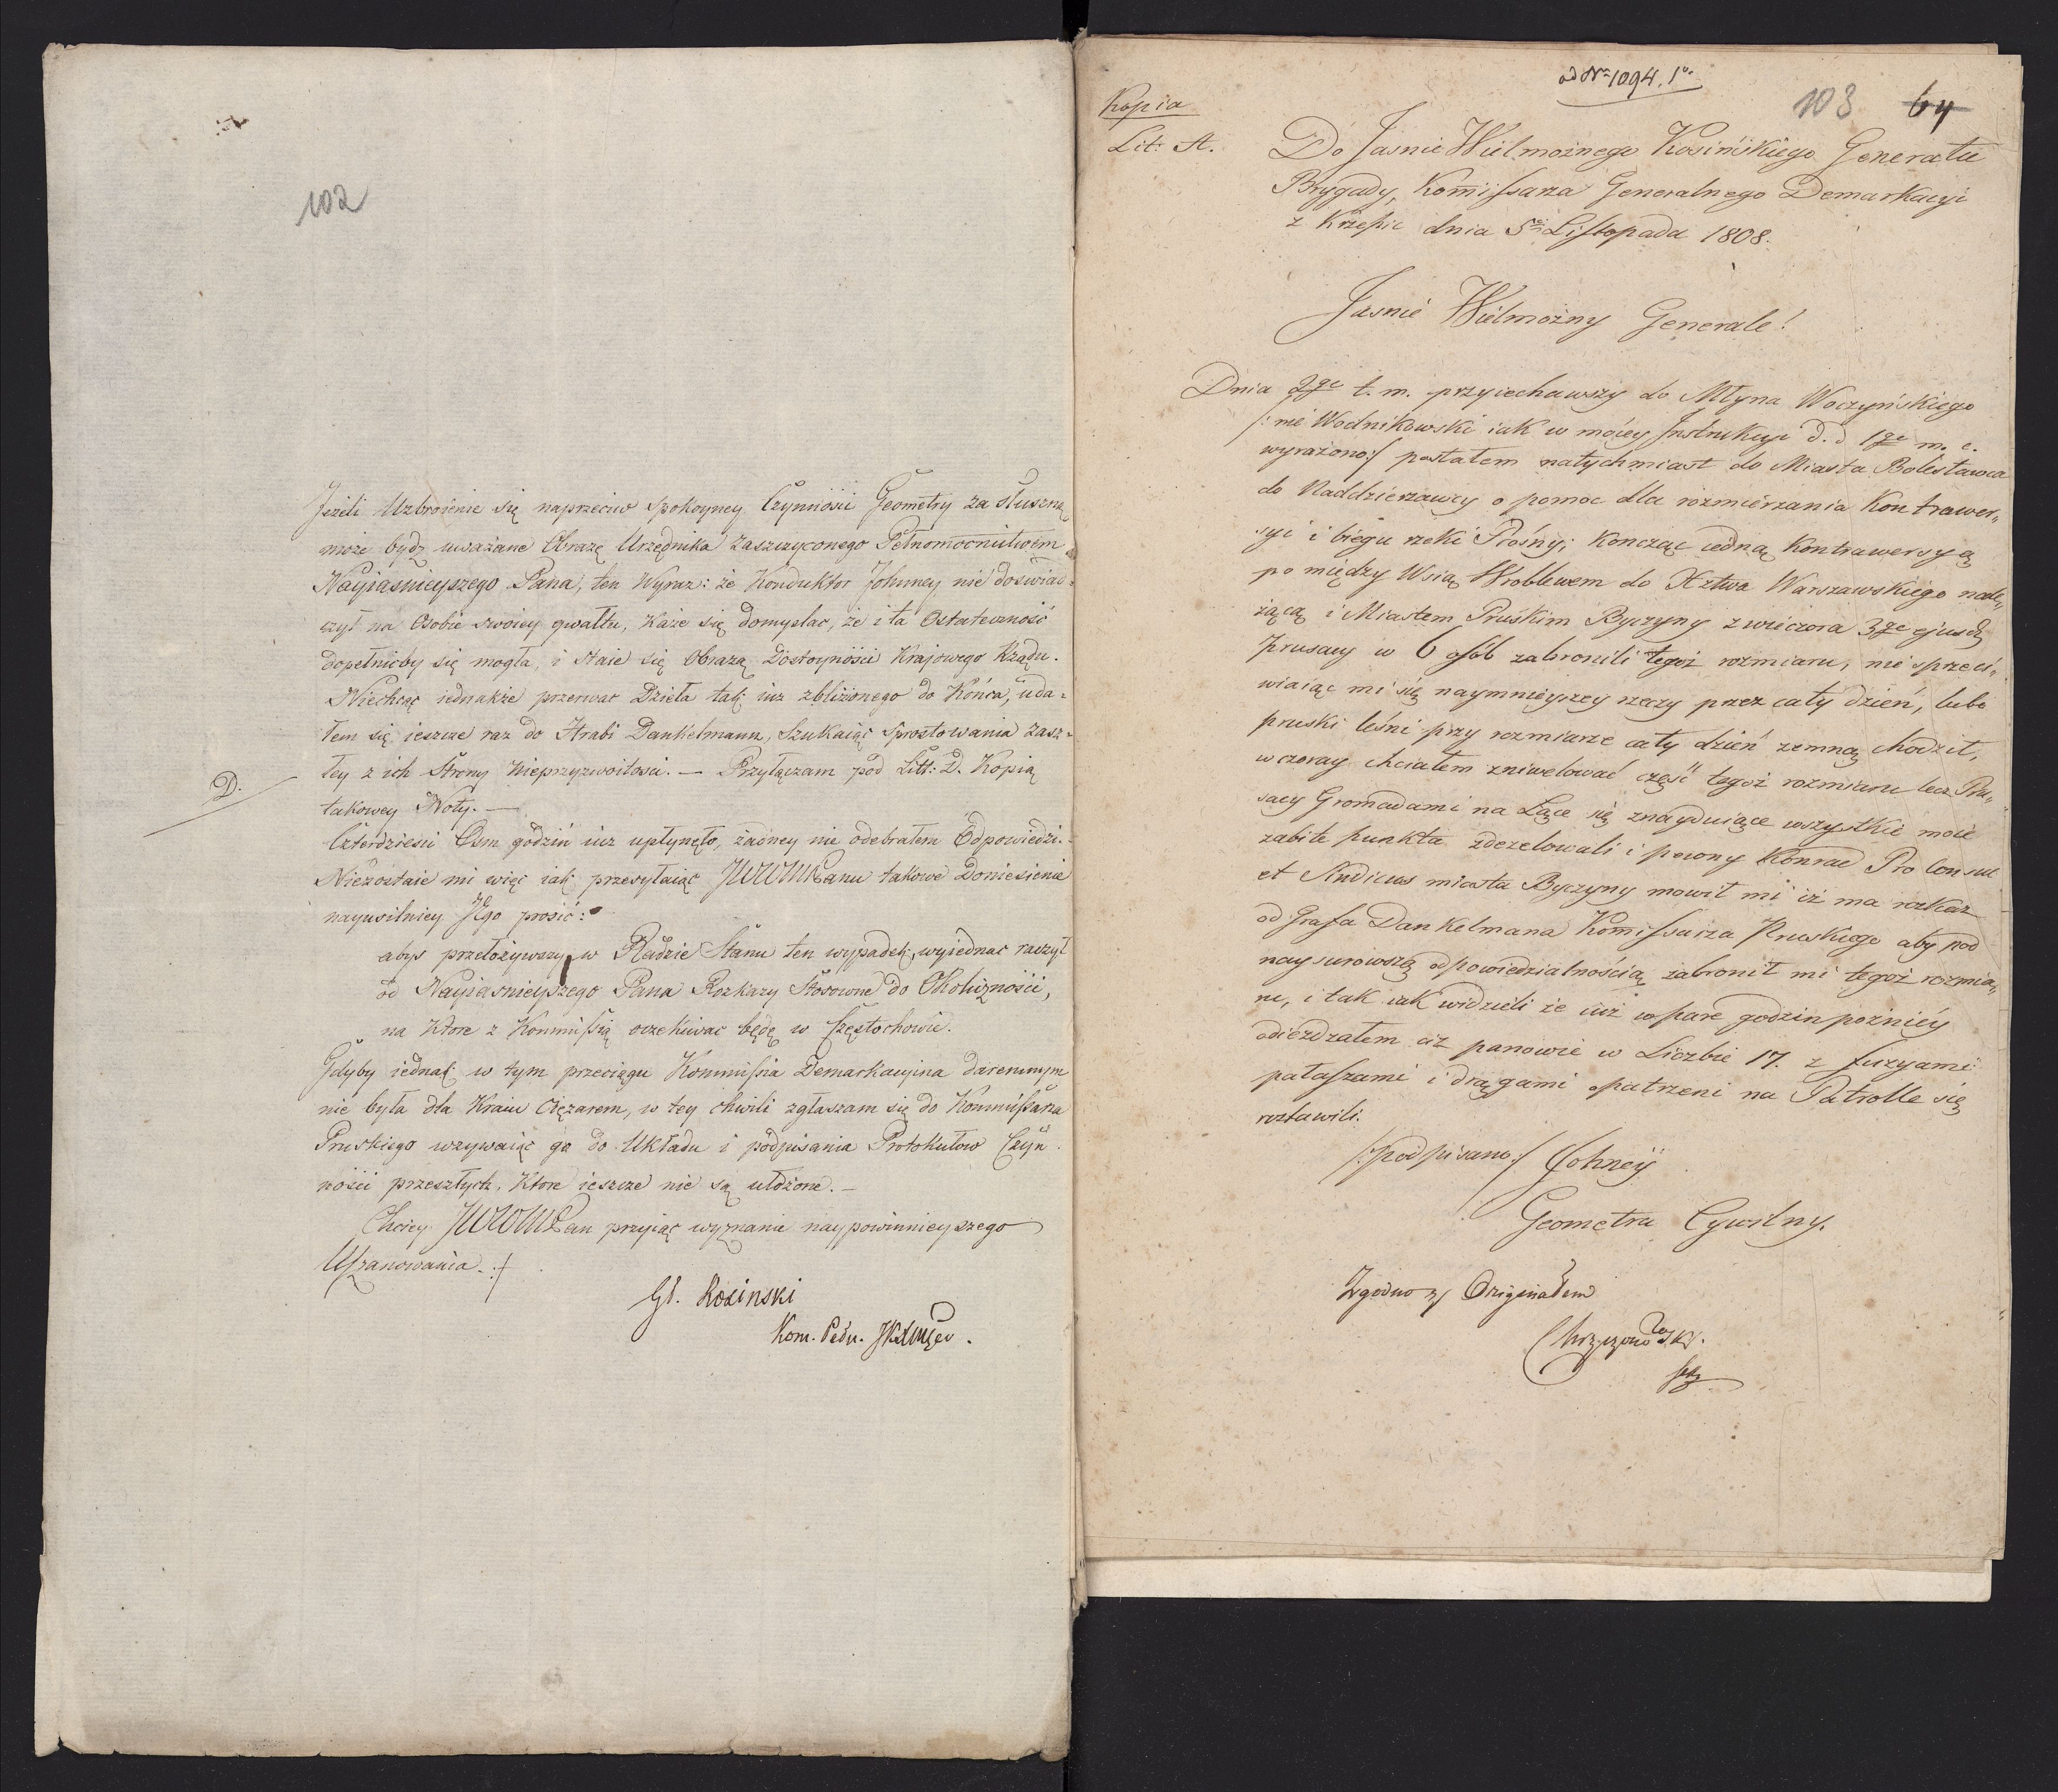 102
Jeżeli Uzbroienie się naprzeciw spokoyney Czynności Geometry za słuszną
może bydz uważane Obrazę Urzędnika zaszczyconego Pełnomocnictwem
Nayiasnieyszego Pana, ten Wyraz: że Konduktor Johnney nie doświad-
czył na Osobie swoiey gwałtu, każe się domyslac, że i ta Ostateczność
dopełnicby się mogła, i staie się Obrazą Dostoyności Krajowego Rządu.
Niechcąc iednakże przerwac Dzieła tak iuz zbliżonego do Końca, uda-
łem się ieszcze raz do Hrabi Dankelmann, Szukaiąc sprostowania zasz-
łey z ich Strony Nieprzyzwoitosci. — Przyłączam pod Litt: D. Kopią
D.
takowey Noty. —
Czterdziesci Osm godzin iuz upłynęło, żadney nie odebrałem Odpowiedzi. -
Niezostaie mi więc iak przesyłaiąc JWWMPanu takowe Doniesienie
nayusilniey Jego prosić:
abys przełożywszy w Radzie Stanu ten wypadek, wyiednac raczył
od Nayiasnieyszego Pana Rozkazy Stosowne do Okoliczności,
na które z Kommissią oczekiwac będę w Częstochowie.
Gdyby iednak w tym przeciągu Kommissia Demarkacyina daremnym
nie była dla Kraiu Ciężarem, w tey chwili zgłaszam się do Kommissarza
Pruskiego wzywaiąc go do Układu i podpisania Protokułow Czyn-
ności przeszłych, Które ieszcze nie są ułożone. —
Chciey JWWMPan przyiąc wyznanie naypowinnieyszego
Uszanowania.
Gł. Kosinski
Kom. Pełn.
ad Nrm 1094. 1o.
103 64
Kopia
Lit: A.
Do Jasnie Wielmożnego Kosińskiego Generała
Brygady, Komissarza Generalnego Demarkacyi
z Krzepic dnia 5go Listopada 1808.
Jasnie Wielmożny Generale!
Dnia 2go t. m. przyiechawszy do Młyna Woczyńskiego
/: nie Wodnikowski iak w moiey Instrukcyi d. d 1go m. c.
wyrażono:/ posłałem natychmiast do Miasta Bolesławca
do Naddzierzawcy o pomoc dla rozmierzania Kontrawer„
syi i biegu rzeki Prosny; Kończąc iedną Kontrawersyą
pomiędzy Wsią Wroblewem do Xztwa Warszawskiego nale„
żącą i Miastem Pruskim Byczyny z wieczora 3go ejusd
Prusacy w 6 osób zabronili tegoż rozmiaru, nie sprzeci„
wiaiąc mi się naymnieyszey rzeczy przez cały dzień, lubo
pruski leśni przy rozmiarze cały dzień zemną chodził,
wczoray chciałem zniwelować część tegoż rozmiaru lecz Pru„
sacy Gromadami na Łące się znayduiące wszystkie moie
zabite punkta zdezelowali i pewny Konrad Pro Consul
et Sindicus miasta Byczyny mowił mi iż ma rozkaz
od Grafa Dankelmana Komissarza Pruskiego aby pod
naysurowszą odpowiedzialnością zabronił mi tegoż rozmia„
ru, i tak iak widzieli że iuż w pare godzin pozniey
odieżdzałem aż panowie w Liczbie 17. z fuzyami
pałaszami i drągami opatrzeni na Patrolle się
rozstawili.
/:podpisano:/ Johneÿ
Geometra Cywilny.
Zgodno z Originałem
Chrzązowski.